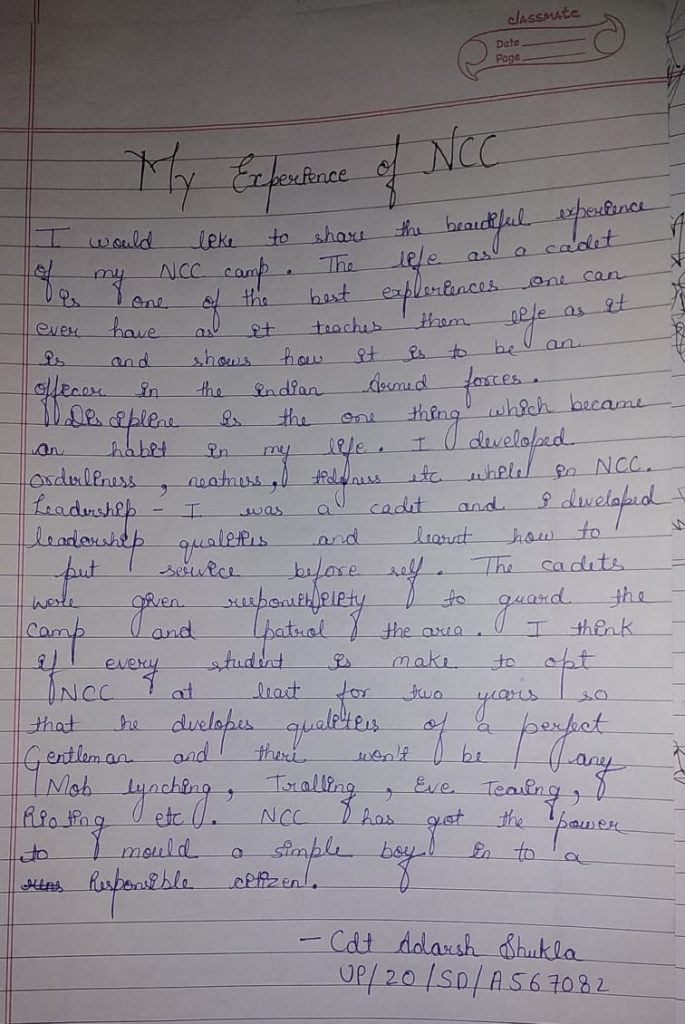 classmate
Date
Page
My Experience of NCC
I would like to share the beautiful experience
of my NCC camp. The life as a cadet
is one of the best expleriences one can
ever have as it teaches them life as it
is and shows how it is to be an
officer in the indian Armed forces.
Discipline is the one thing which became
an habit in my life. I developed
orderliness, neatness, tidyness etc while in NCC.
Leadership - I was a cadet and I developed
leadership qualities and learnt how to
put service before self. The cadets
were given responsibility to guard the
camp and patrol the area. I think
if every student is make to opt
NCC at least for two years so
that he dvelopes qualities of a perfect
Gentleman and their won't be any
Mob lynching, Trolling, Eve Teasing,
Rioting etc. NCC has got the power
to mould a simple boy in to a
Responsible citizen.
- Cdt Adarsh Shukla
UP/20/SD/A567082